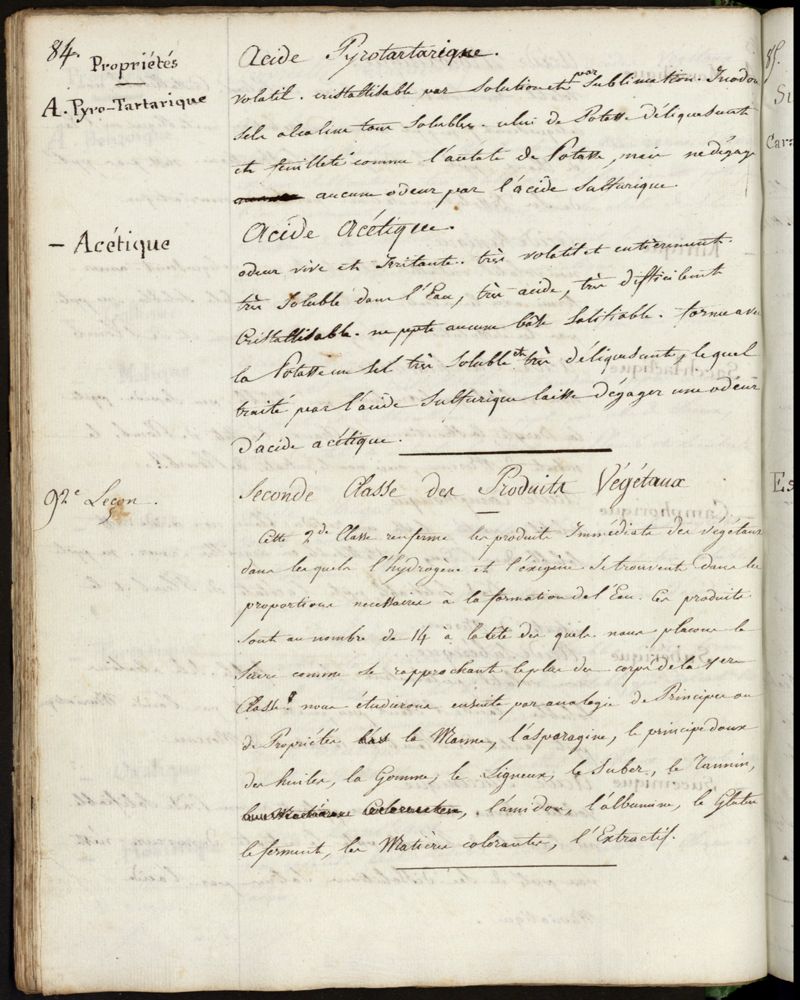 84.
Propriétés
A. Pyro-Tartarique
Acide Pyrotartarique.
volatil. cristallisable par Solution et par Sublimation. Inodore
sels alcalins tous Solubles. celui de Potasse déliquescent
et feuilleté comme l'acétate de Potasse, mais ne dégage
aucune odeur par l'acide Sulfurique
- Acétique
Acide Acétique.
odeur vive et Irritante. très volatil et entièrement.
très Soluble dans l'Eau, très acide, très difficilemt
Cristallisable. ne ppte aucune base Salifiable. forme avec
la Potasse un Sel très Soluble et très déliquescent, lequel
traité par l'acide Sulfurique laisse dégager une odeur
d'acide acétique.
92e Leçon.
Seconde Classe des Produits Végétaux
Cette 2de Classe renferme les produits Immédiats des végétaux
dans lesquels l'hydrogène et l'oxigène se trouvent dans les
proportions necessaires à la formation de l'Eau. Ces produits
sont au nombre de 14 à la tête des quels nous plaçons le
Sucre comme se rapprochant le plus des corps de la 1ere
Classe. nous étudierons ensuite par analogie de Principes ou
de Propriétés la Manne, l'asparagine, le principe doux
des huiles, la Gomme, le Ligneux, le Suber, le Tannin,
l'amidon, l'albumine, le Gluten
le ferment, les Matières colorantes, l'Extractif.
85.